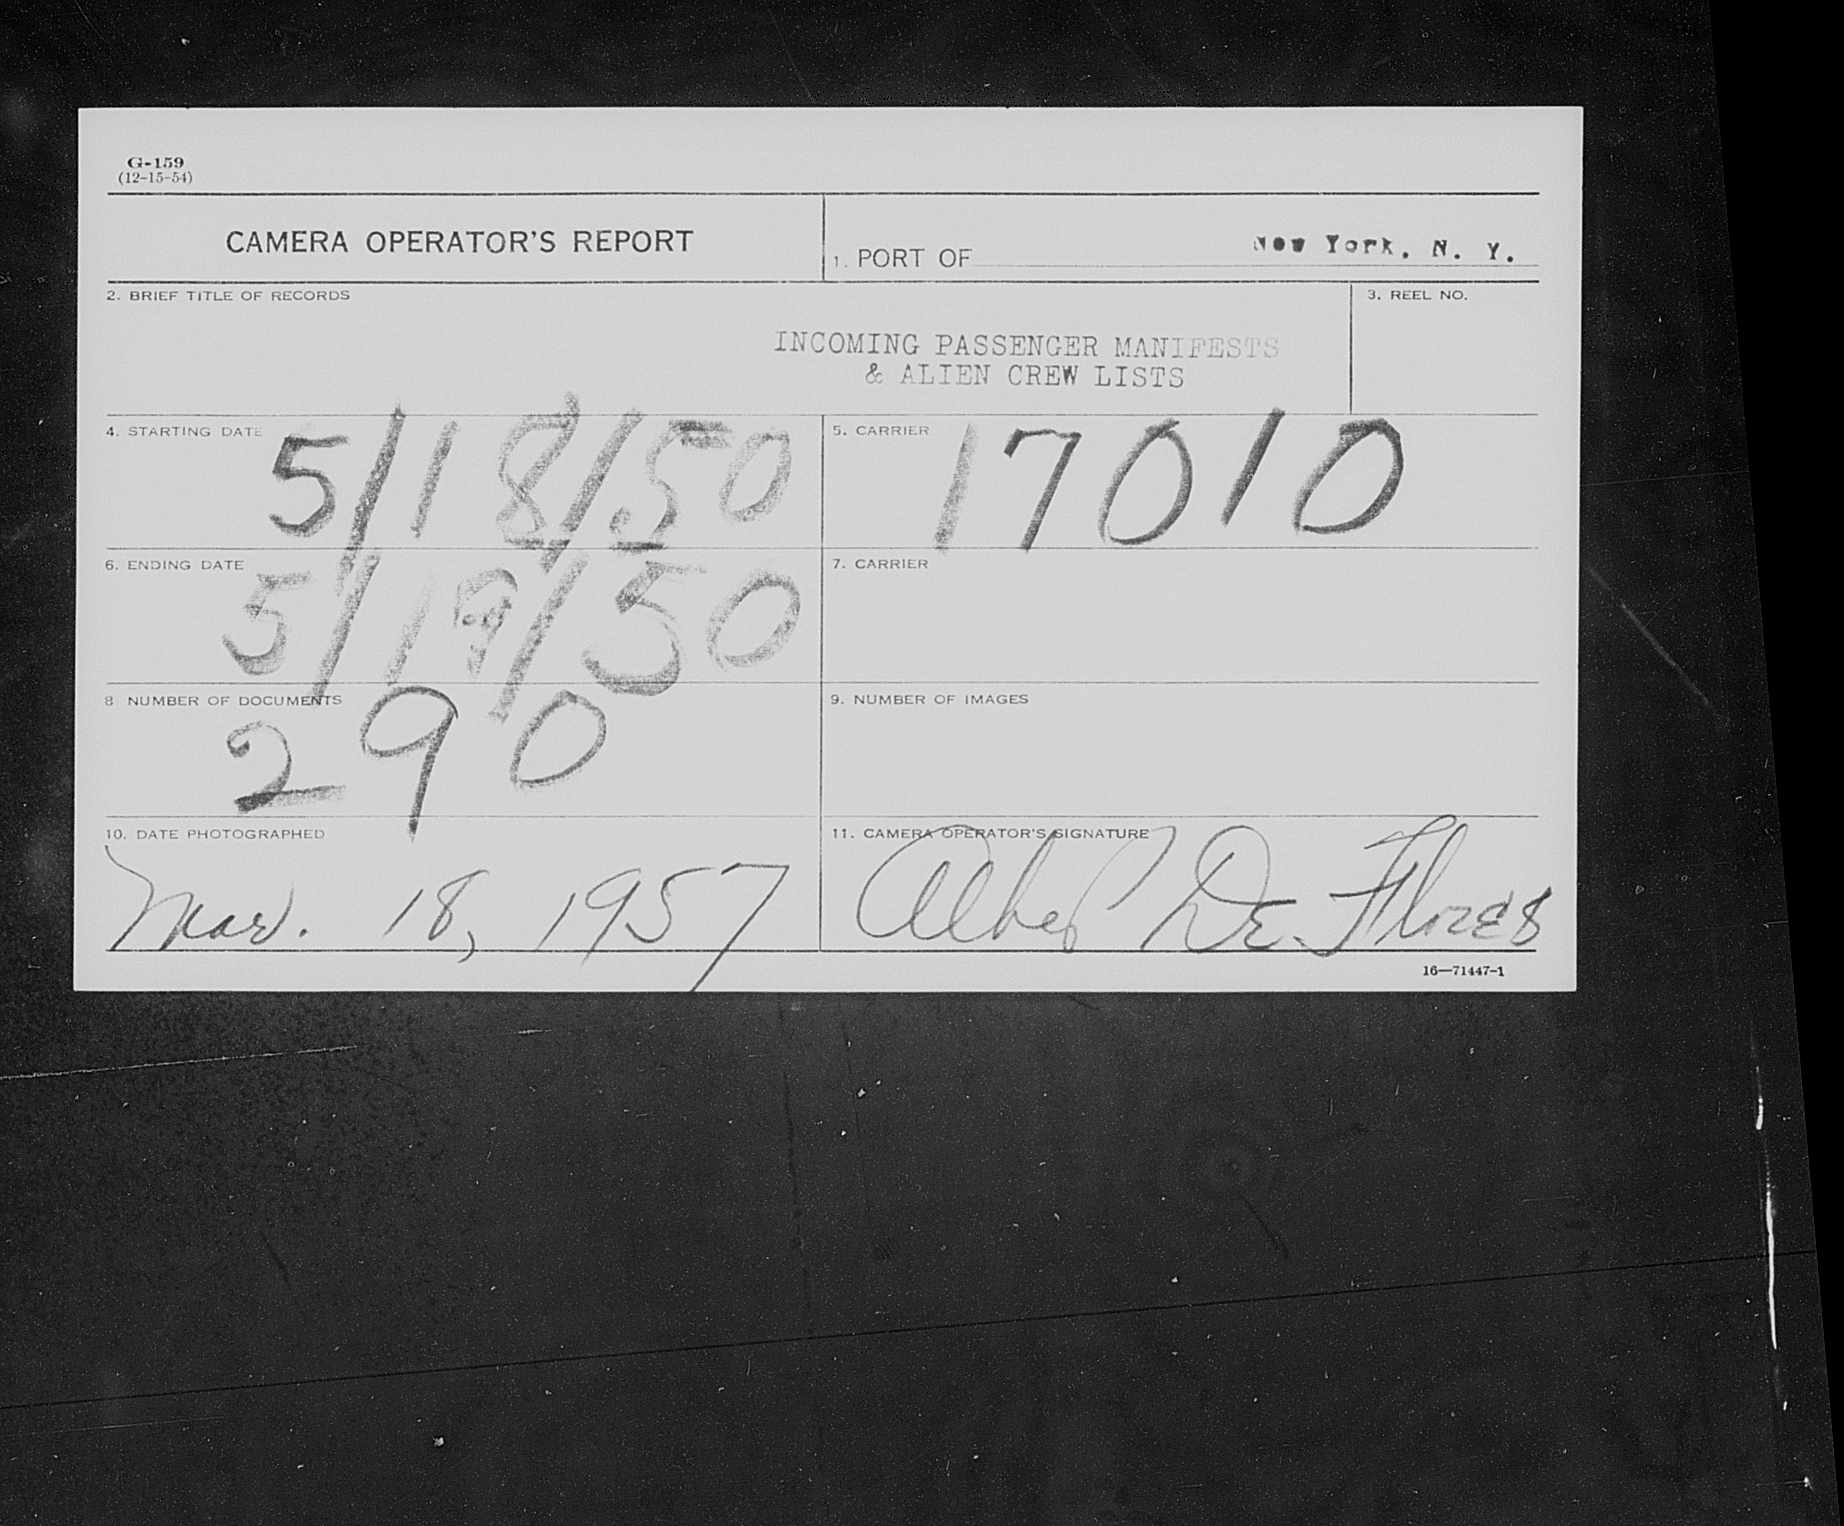 G-159
(12-15-54)
CAMERA OPERATOR'S REPORT
1. PORT OF New York, N. Y.
2. BRIEF TITLE OF RECORDS
INCOMING PASSENGER MANIFESTS
& ALIEN CREW LISTS
3. REEL NO.
4. STARTING DATE 5/18/50
5. CARRIER 17010
6. ENDING DATE 5/19/50
7. CARRIER
8 NUMBER OF DOCUMENTS 290
9. NUMBER OF IMAGES
10. DATE PHOTOGRAPHED
Mar. 18, 1957
11. CAMERA OPERATOR'S SIGNATURE
De Flores
16—71447-1